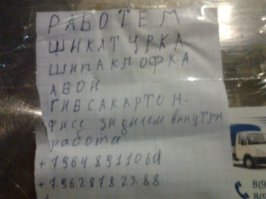 РАБОТЕМ
ШИКАТУРКА
ШИПАКЛОФКА
АБОЙ
ГИБСАКАРТОН.
фисе зделем вонутри
работа
+79648911060
+79628782388
8(9
8(9